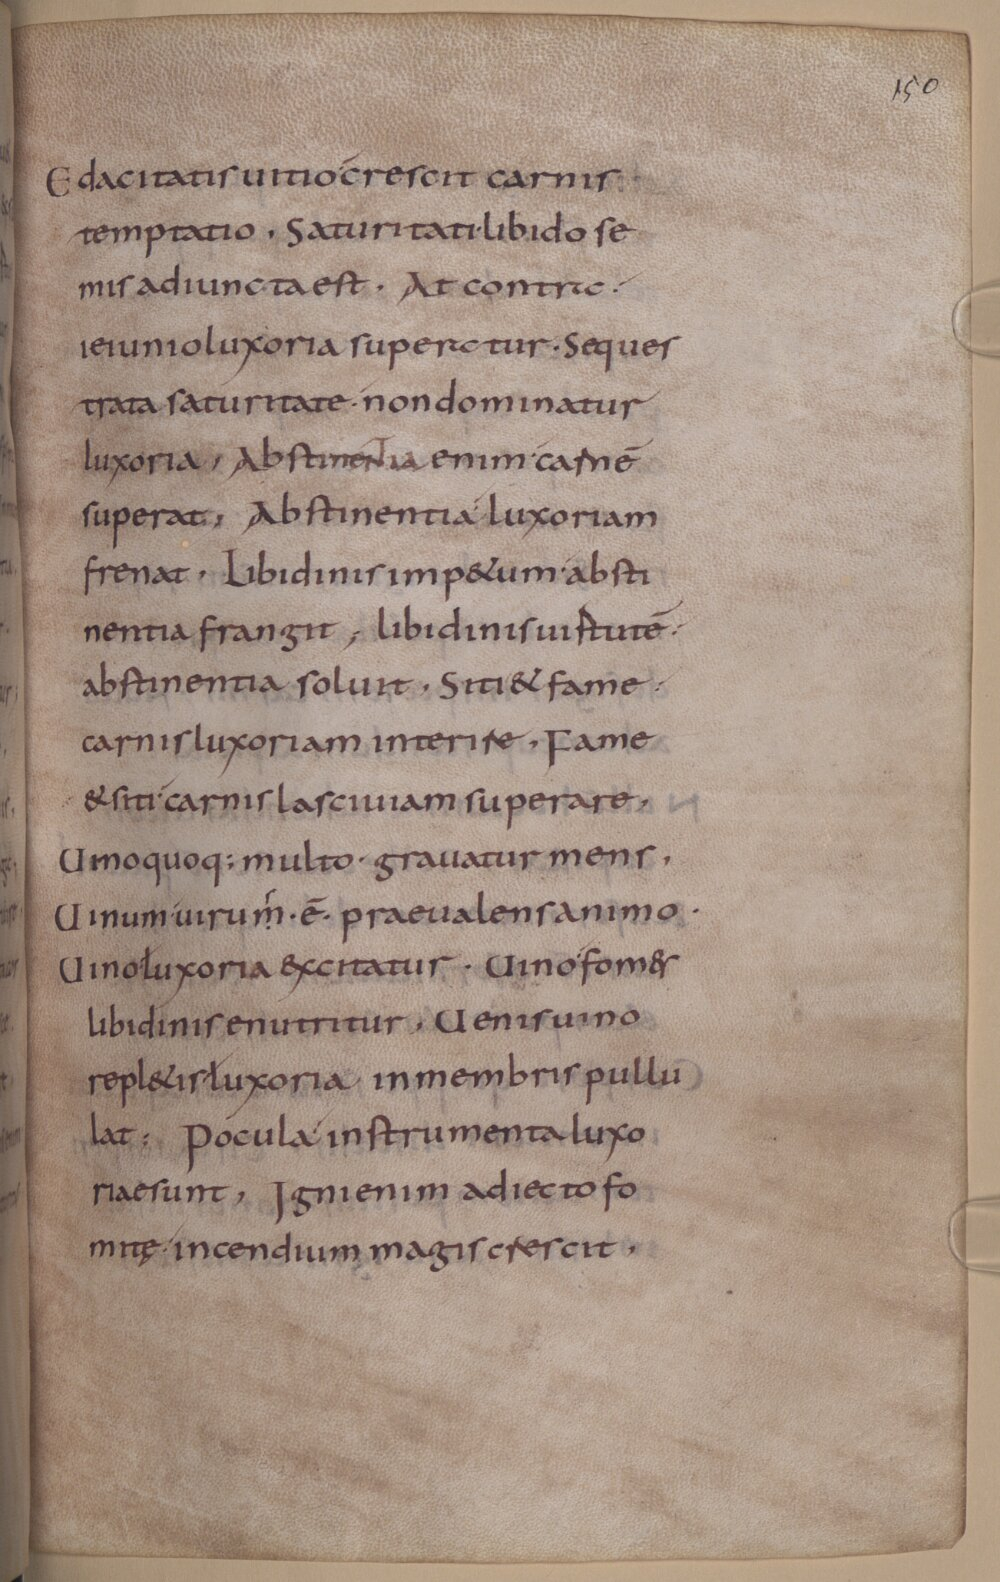 150
Edacitatis uitio crescit carnis
temptatio . Saturitati libido se
mis adiuncta est . At contra .
ieiunio luxoria superatur . Seques
trata saturitate non dominatur
luxoria , Abstinentia enim carnē
superat , Abstinentia luxoriam
frenat . Libidinis imp&um absti
nentia frangit , libidinis uirtutē .
abstinentia soluit . Siti & fame .
carnis luxoriam interire , Fame
& siti carnis lasciuiam superare ,
Uino quoq: multo grauatur mens ,
Uinum uirum . ē . praeualens animo .
Uino luxoria excitatur . Uino fom&s
libidinis enutritur . Uenis uino
repl&is luxoria in membris pullu
lat : Pocula instrumenta luxo
riae sunt , Igni enim adiecto fo
mitę incendium magis crescit ,